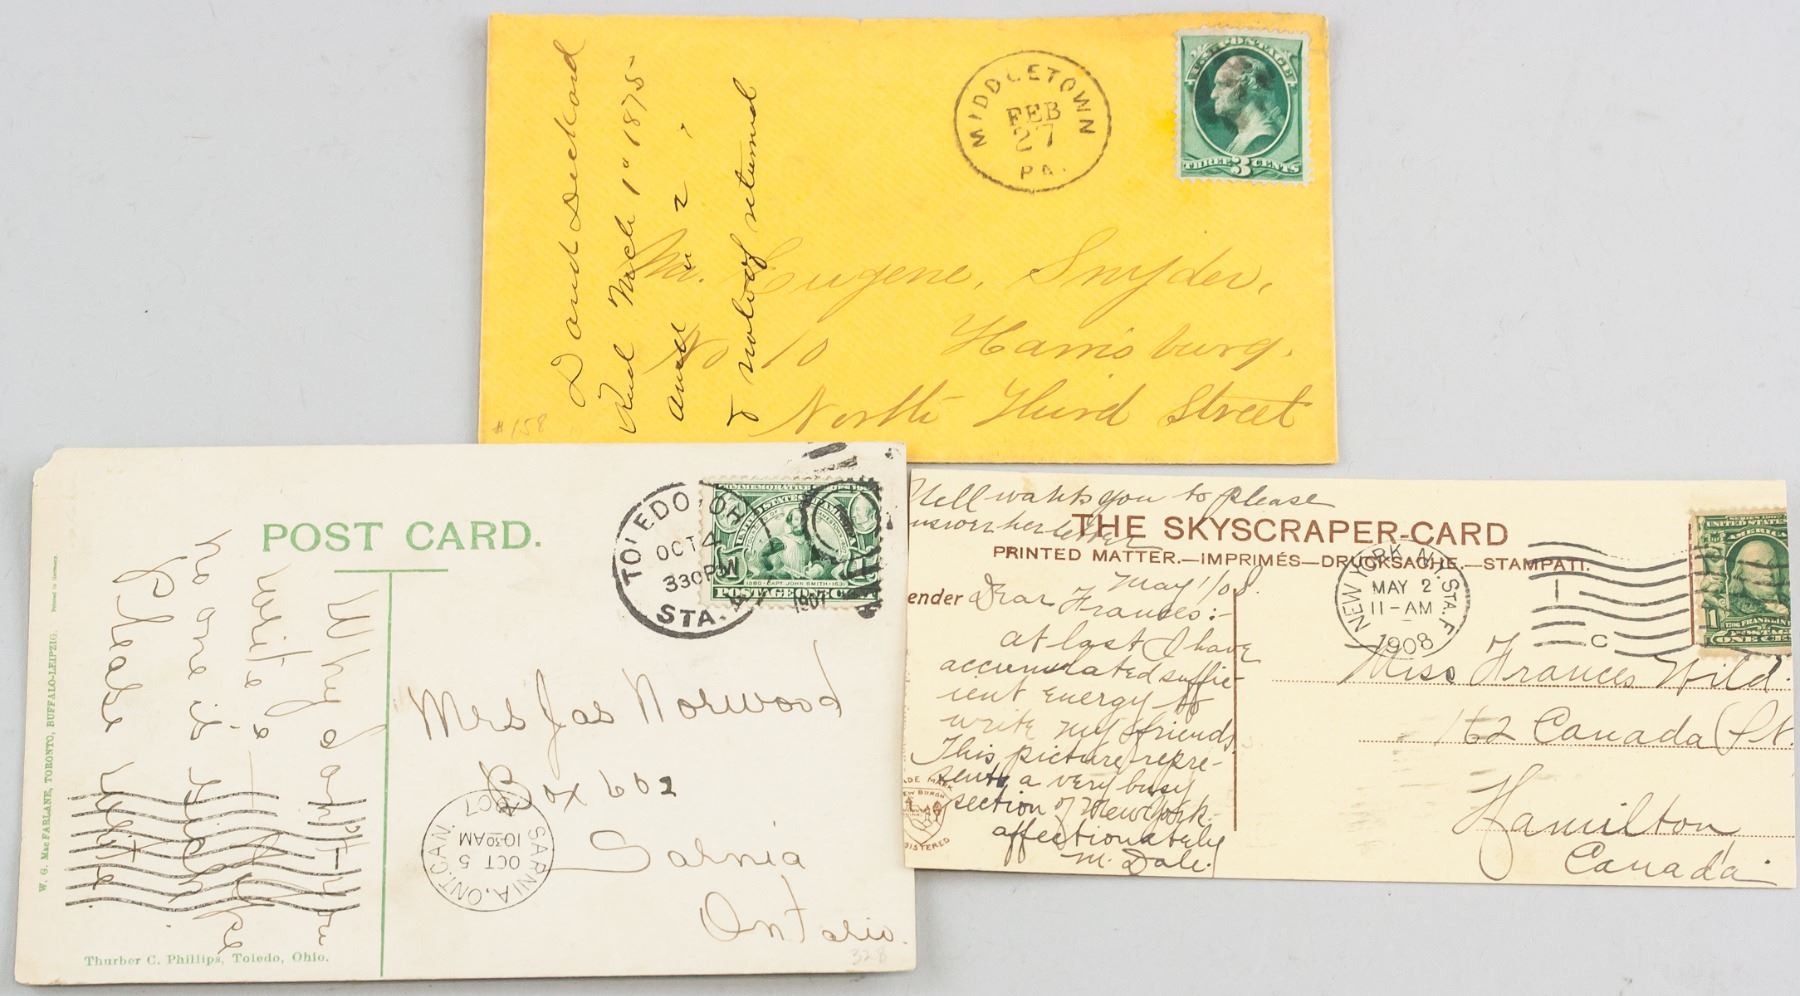 MIDDLETOWN
FEB
27
PA.
U.S. POSTAGE
THREE 3 CENTS
Recd March 1st 1875
and
returned
Mr. Eugene, Snyder,
No 10 Harrisburg.
North Third Street
#158
POST CARD.
TOLEDO, OH
OCT 4
330 PM
STA.
1907
COMMEMORATIVE
1580 CAPT. JOHN SMITH 1631
POSTAGE
Why don't you
write
no one is sick I hope
Please write
Mrs Jas Norwood
Box 602
Sarnia
Ontario.
SARNIA, ONT. CAN.
OCT 5
10-30 AM
07
W. G. MacFARLANE, TORONTO, BUFFALO-LEIPZIG. Printed in Germany.
Thurber C. Phillips, Toledo, Ohio.
328
Nell wants you to please
answer her letter
THE SKYSCRAPER-CARD
PRINTED MATTER.—IMPRIMÉS—DRUCKSACHE.—STAMPATI.
ender
May 1/08.
Dear Frances:-
at last I have
accumulated suffic-
ient energy to
write my friends.
This picture repre-
sents a very busy
section of New York.
affectionately
M. Dale.
NEW YORK, N.Y. STA. F
MAY 2
11-AM
1908
C
UNITED STATES
AMERICA
FRANKLIN
POSTAGE
ONE CENT
Miss Frances Wild.
162 Canada St.
Hamilton,
Canada
ADE MARK
EW BURGH
ISTERED